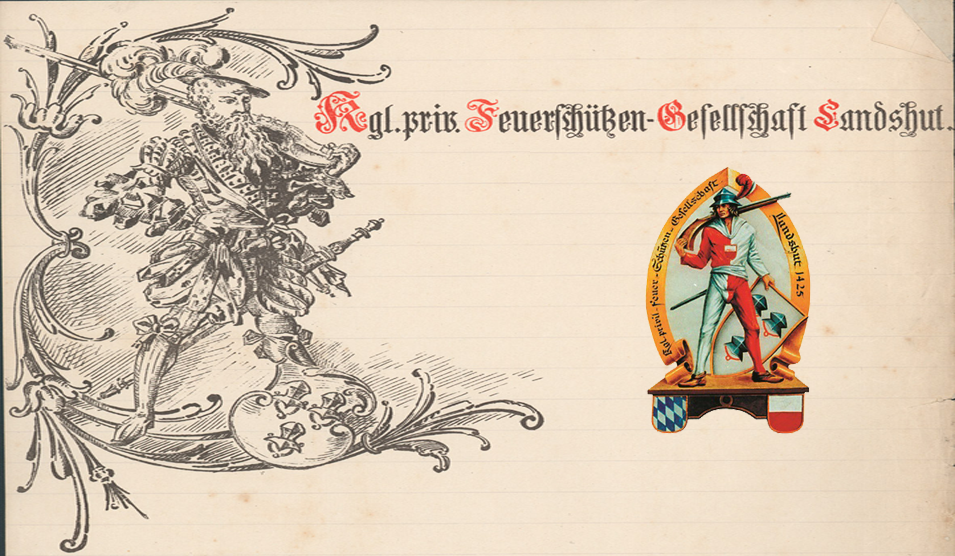 Kgl. priv. Feuerschützen-Gesellschaft Landshut.
Kgl. privil. Feuer-Schützen-Gesellschaft
Landshut 1425